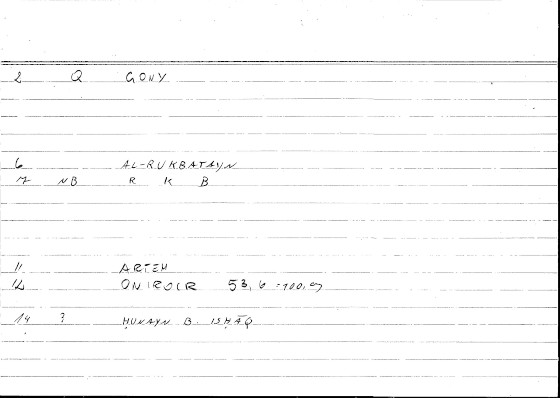 2 Q GONY
6 AL-RUKBATAYN
7 NB R K B
11 ARTEM
12 ONIROCR 53,6
14 ? ḤUNAYN B. ISḤĀQ